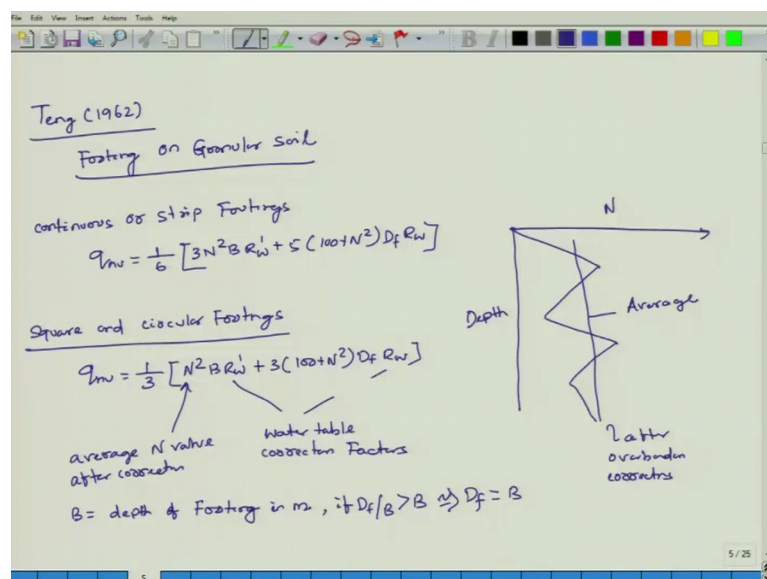 File Edit View Insert Actions Tools Help
Teng (1962)
Footing on Granular Soil
continuous or strip Footings
qnu = 1/6 [3N²BRw' + 5(100+N²)Df Rw]
Square and circular Footings
qnu = 1/3 [N²BRw' + 3(100+N²)Df Rw]
average N value
after correction
water table
correction Factors
B = depth of Footing in m, if Df/B > B ⇒ Df = B
N
Depth
Average
after
overburden
corrections
5 / 25
5